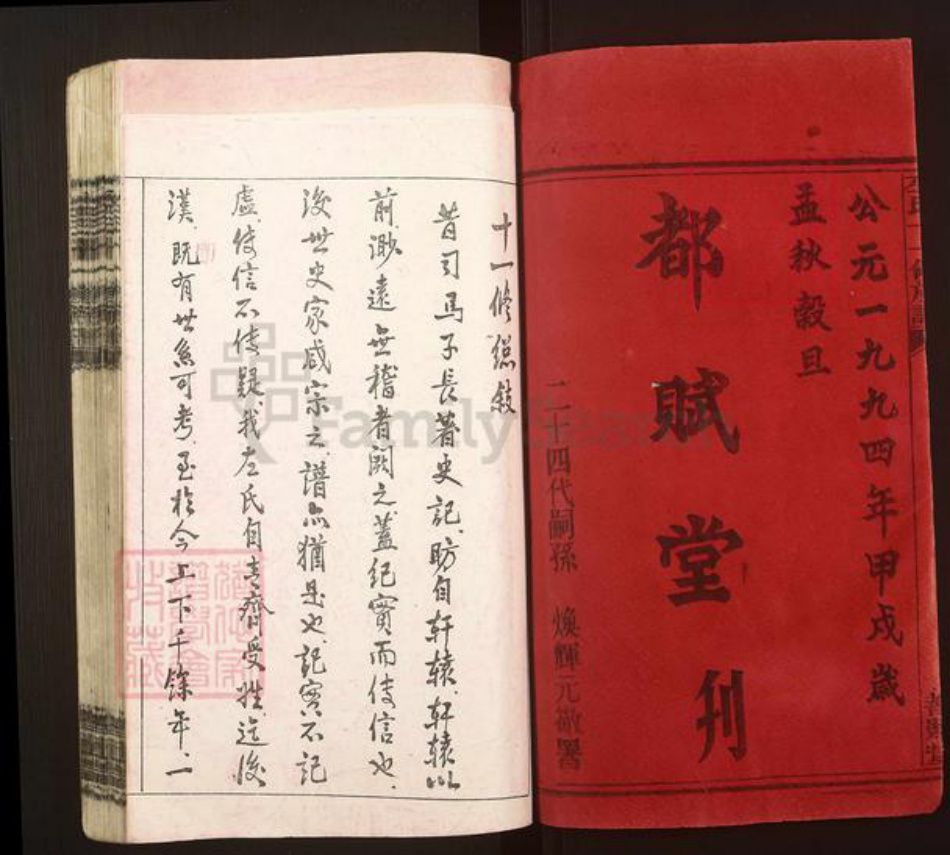 公元一九九四年甲戌歲
孟秋穀旦
都賦堂刊
二十四代嗣孫 煥輝元敬署
十一修總敍
昔司馬子長著史記、昉自軒轅、軒轅以
前、渺遠無稽者闕之、蓋紀實而傳信也、
後世史家咸宗之、譜亦猶是也、記實不記
虛、傳信不傳疑、我左氏自青齊受姓、迄後
漢、既有世系可考、至於今上下千餘年、一
FamilySearch